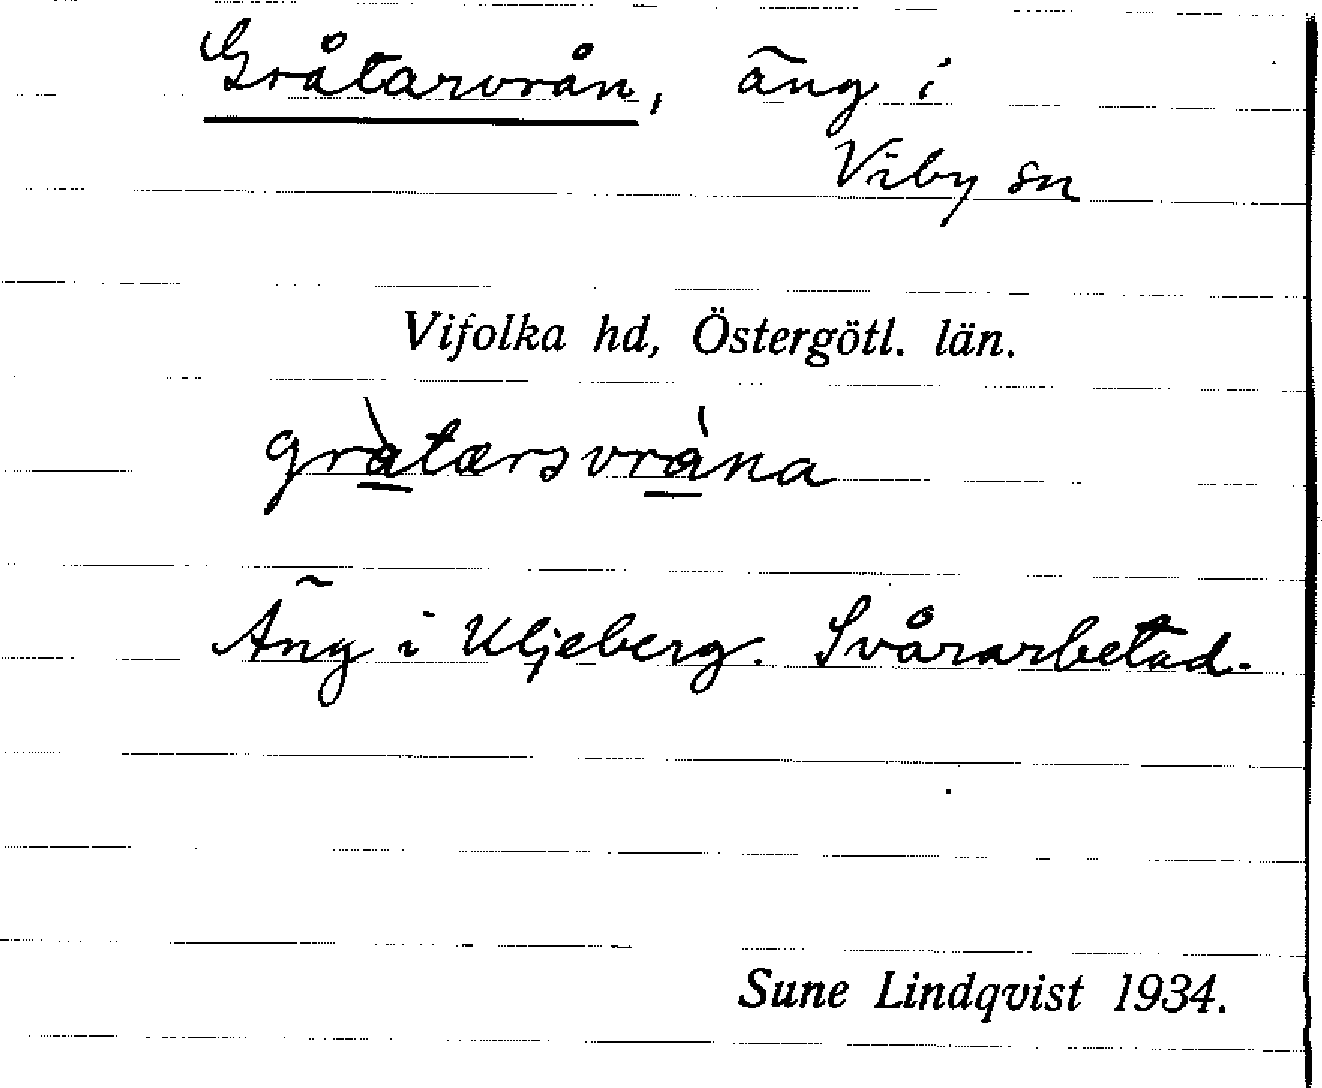 Gråtarvrån, äng i
Viby sn
Vifolka hd, Östergötl. län.
gràtærsvràna
Äng i Uljeberg. Svårarbetad.
Sune Lindqvist 1934.